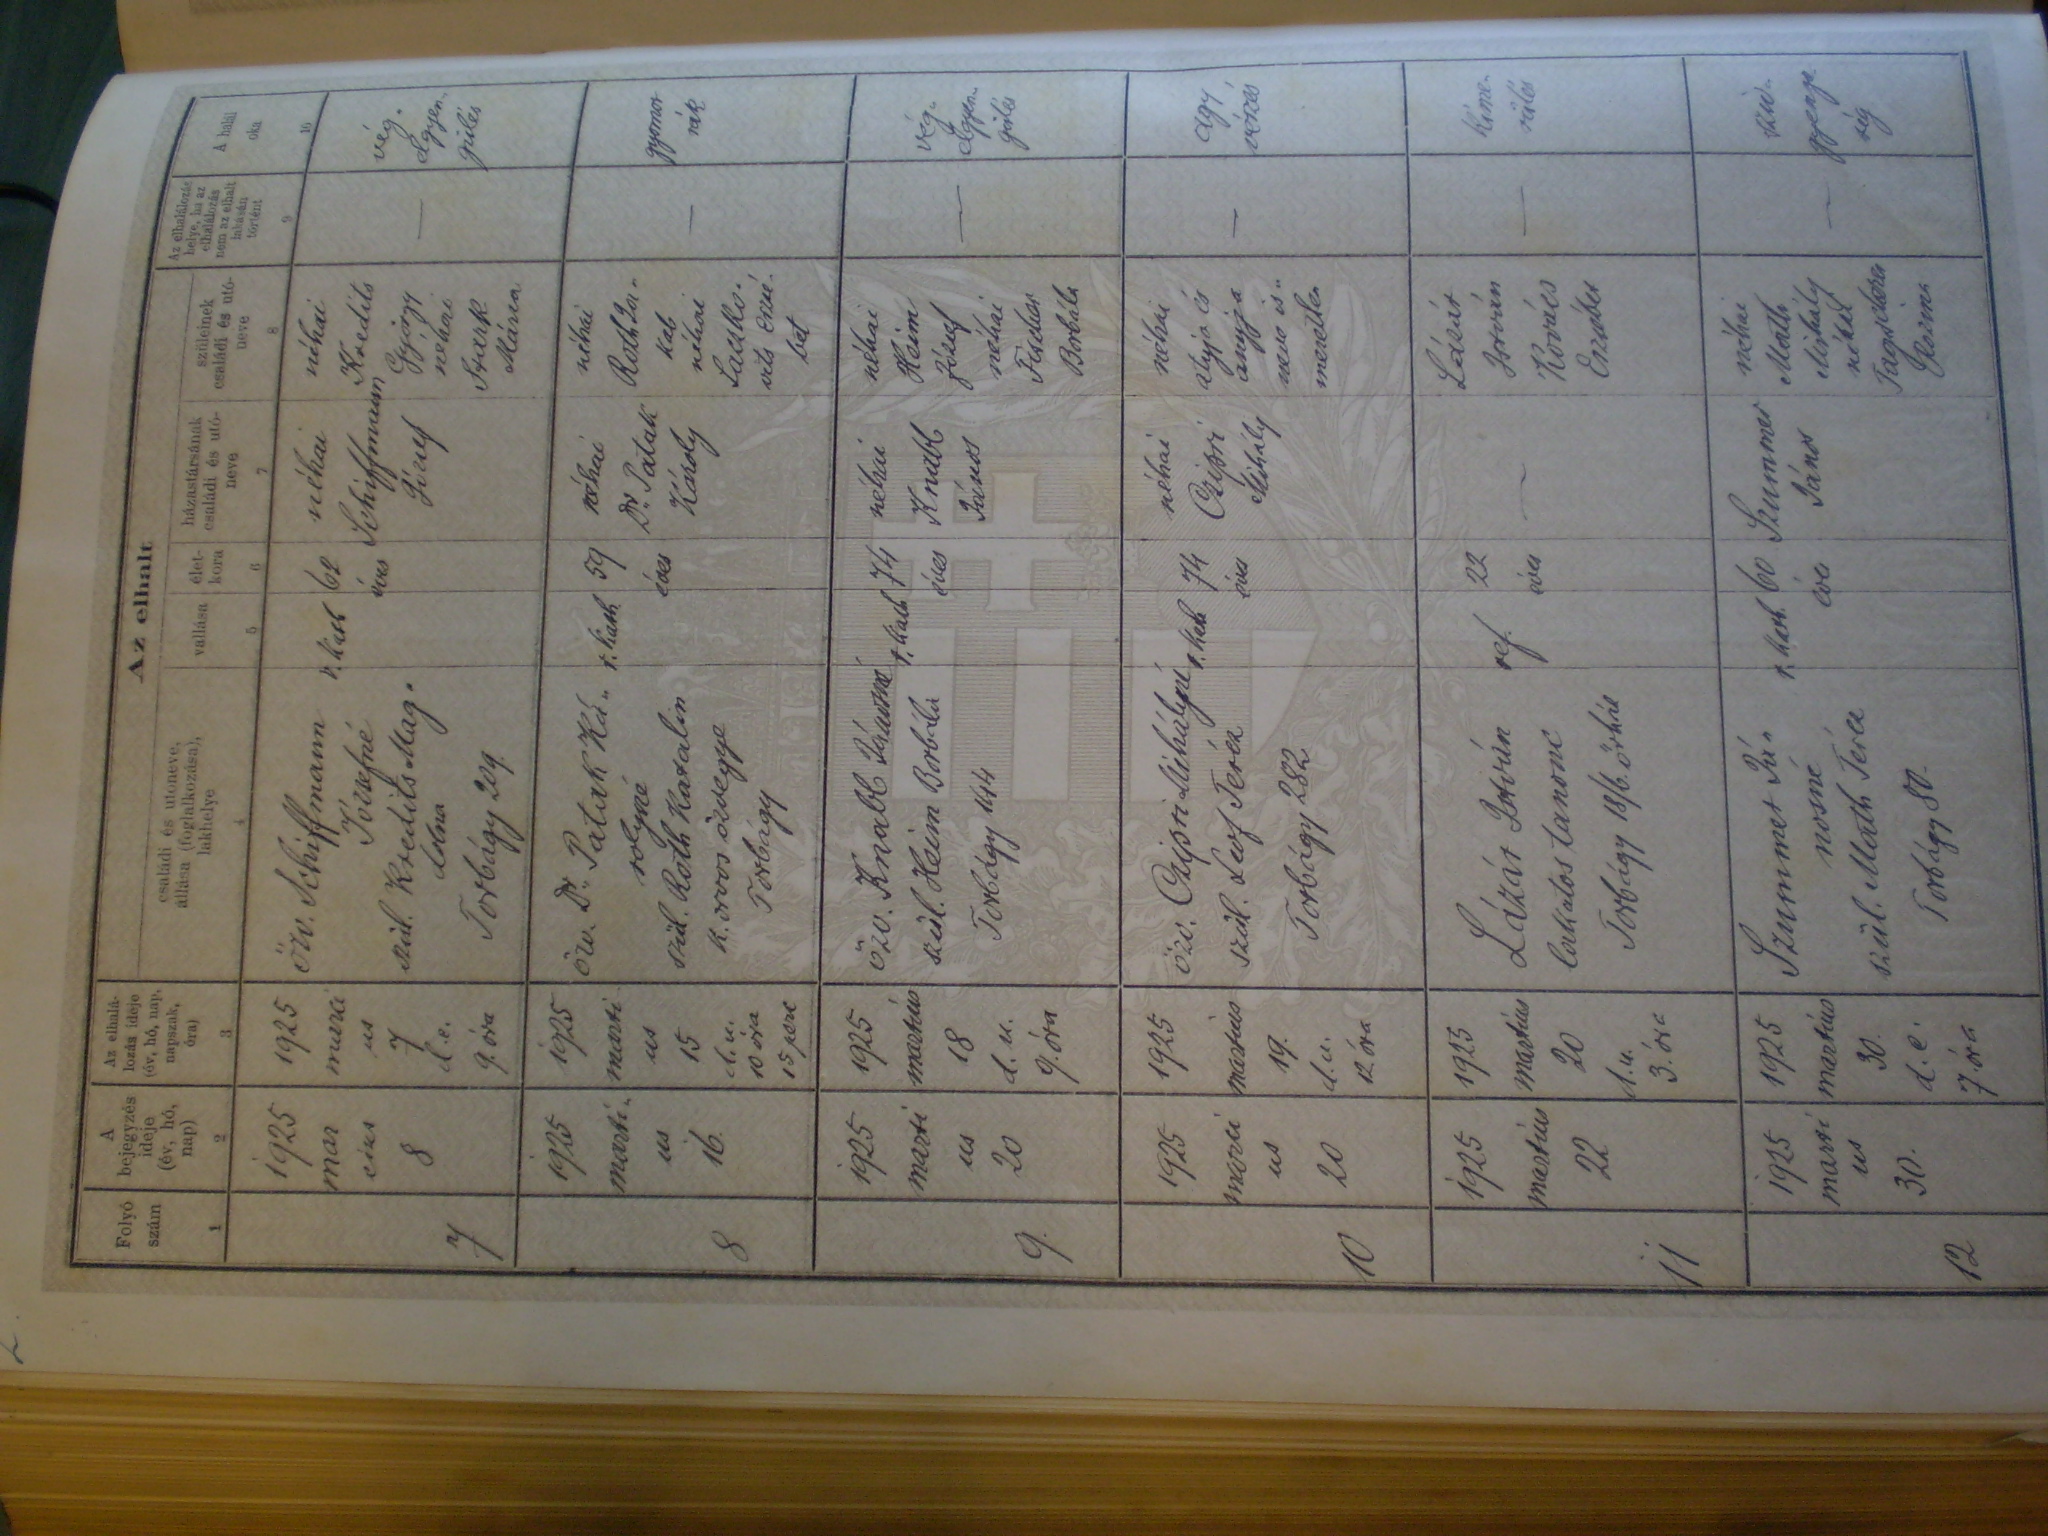 Az elhalt
Folyó
szám
A
bejegyzés
ideje
(év, hó,
nap)
Az elhalá-
lozás ideje
(év, hó, nap,
napszak,
óra)
családi és utoneve,
állása (foglalkozása),
lakhelye
vallása
élet-
kora
házastársának
családi és utó-
neve
szüleinek
családi és utó-
neve
Az elhalálozás
helye, ha az
elhalálozás
nem az elhalt
lakásán
történt
A halál
oka
1
2
3
4
5
6
7
8
9
10
7
1925
mar
cius
8
1925
marci
us
7
d. e.
9. óra
özv. Schiffmann
Józsefné
szül. Kredits Mag-
dolna
Torbágy 209.
r. kath
62
éves
néhai
Schiffmann
József
néhai
Kredits
György
néhai
Stark
Mária
—
vég-
elgyen-
gülés
8
1925
marti-
us
16.
1925
marti-
us
15
d. u.
10 óra
15 perc
özv. Dr. Patak Ká-
rolyné
szül. Roth Katalin
k. orvos özvegye
Torbágy
r. kath
59
éves
néhai
Dr. Patak
Károly
néhai
Roth Ja-
kab
néhai
Laszko-
vits Erzsé-
bet
—
gyomor
rák
9.
1925
marti
us
20
1925
martius
18
d. u.
9. óra
özv. Knabl Jánosné
szül. Heim Borbála
Torbágy 144
r. kath
74
éves
néhai
Knabl
János
néhai
Heim
József
néhai
Borbála
—
vég-
elgyen-
gülés
10
1925
marci
us
20
1925
martius
19.
d. u.
12 óra
özv. Czipri Mihályné
szül. Teréz
Torbágy 282
r. kath
74
éves
néhai
Czipri
Mihály
néhai
atyja és
anyja
neve is-
meretlen
—
agy
vérzés
11
1925
martius
22
1925
martius
20
d. u.
3. óra
Lázár István
lakatos tanonc
Torbágy 18/b. őrház
ref.
22
éves
—
Lázár
István
Kovács
Erzsébet
—
kime-
rülés
12
1925
marti
us
30.
1925
martius
30.
d. e.
7 óra
Szummer Já-
nosné
szül. Máth Teréz
Torbágy 80.
r. kath.
60
éves
Szummer
János
néhai
Máth
Mihály
néhai
—
szív-
gyenge
ség